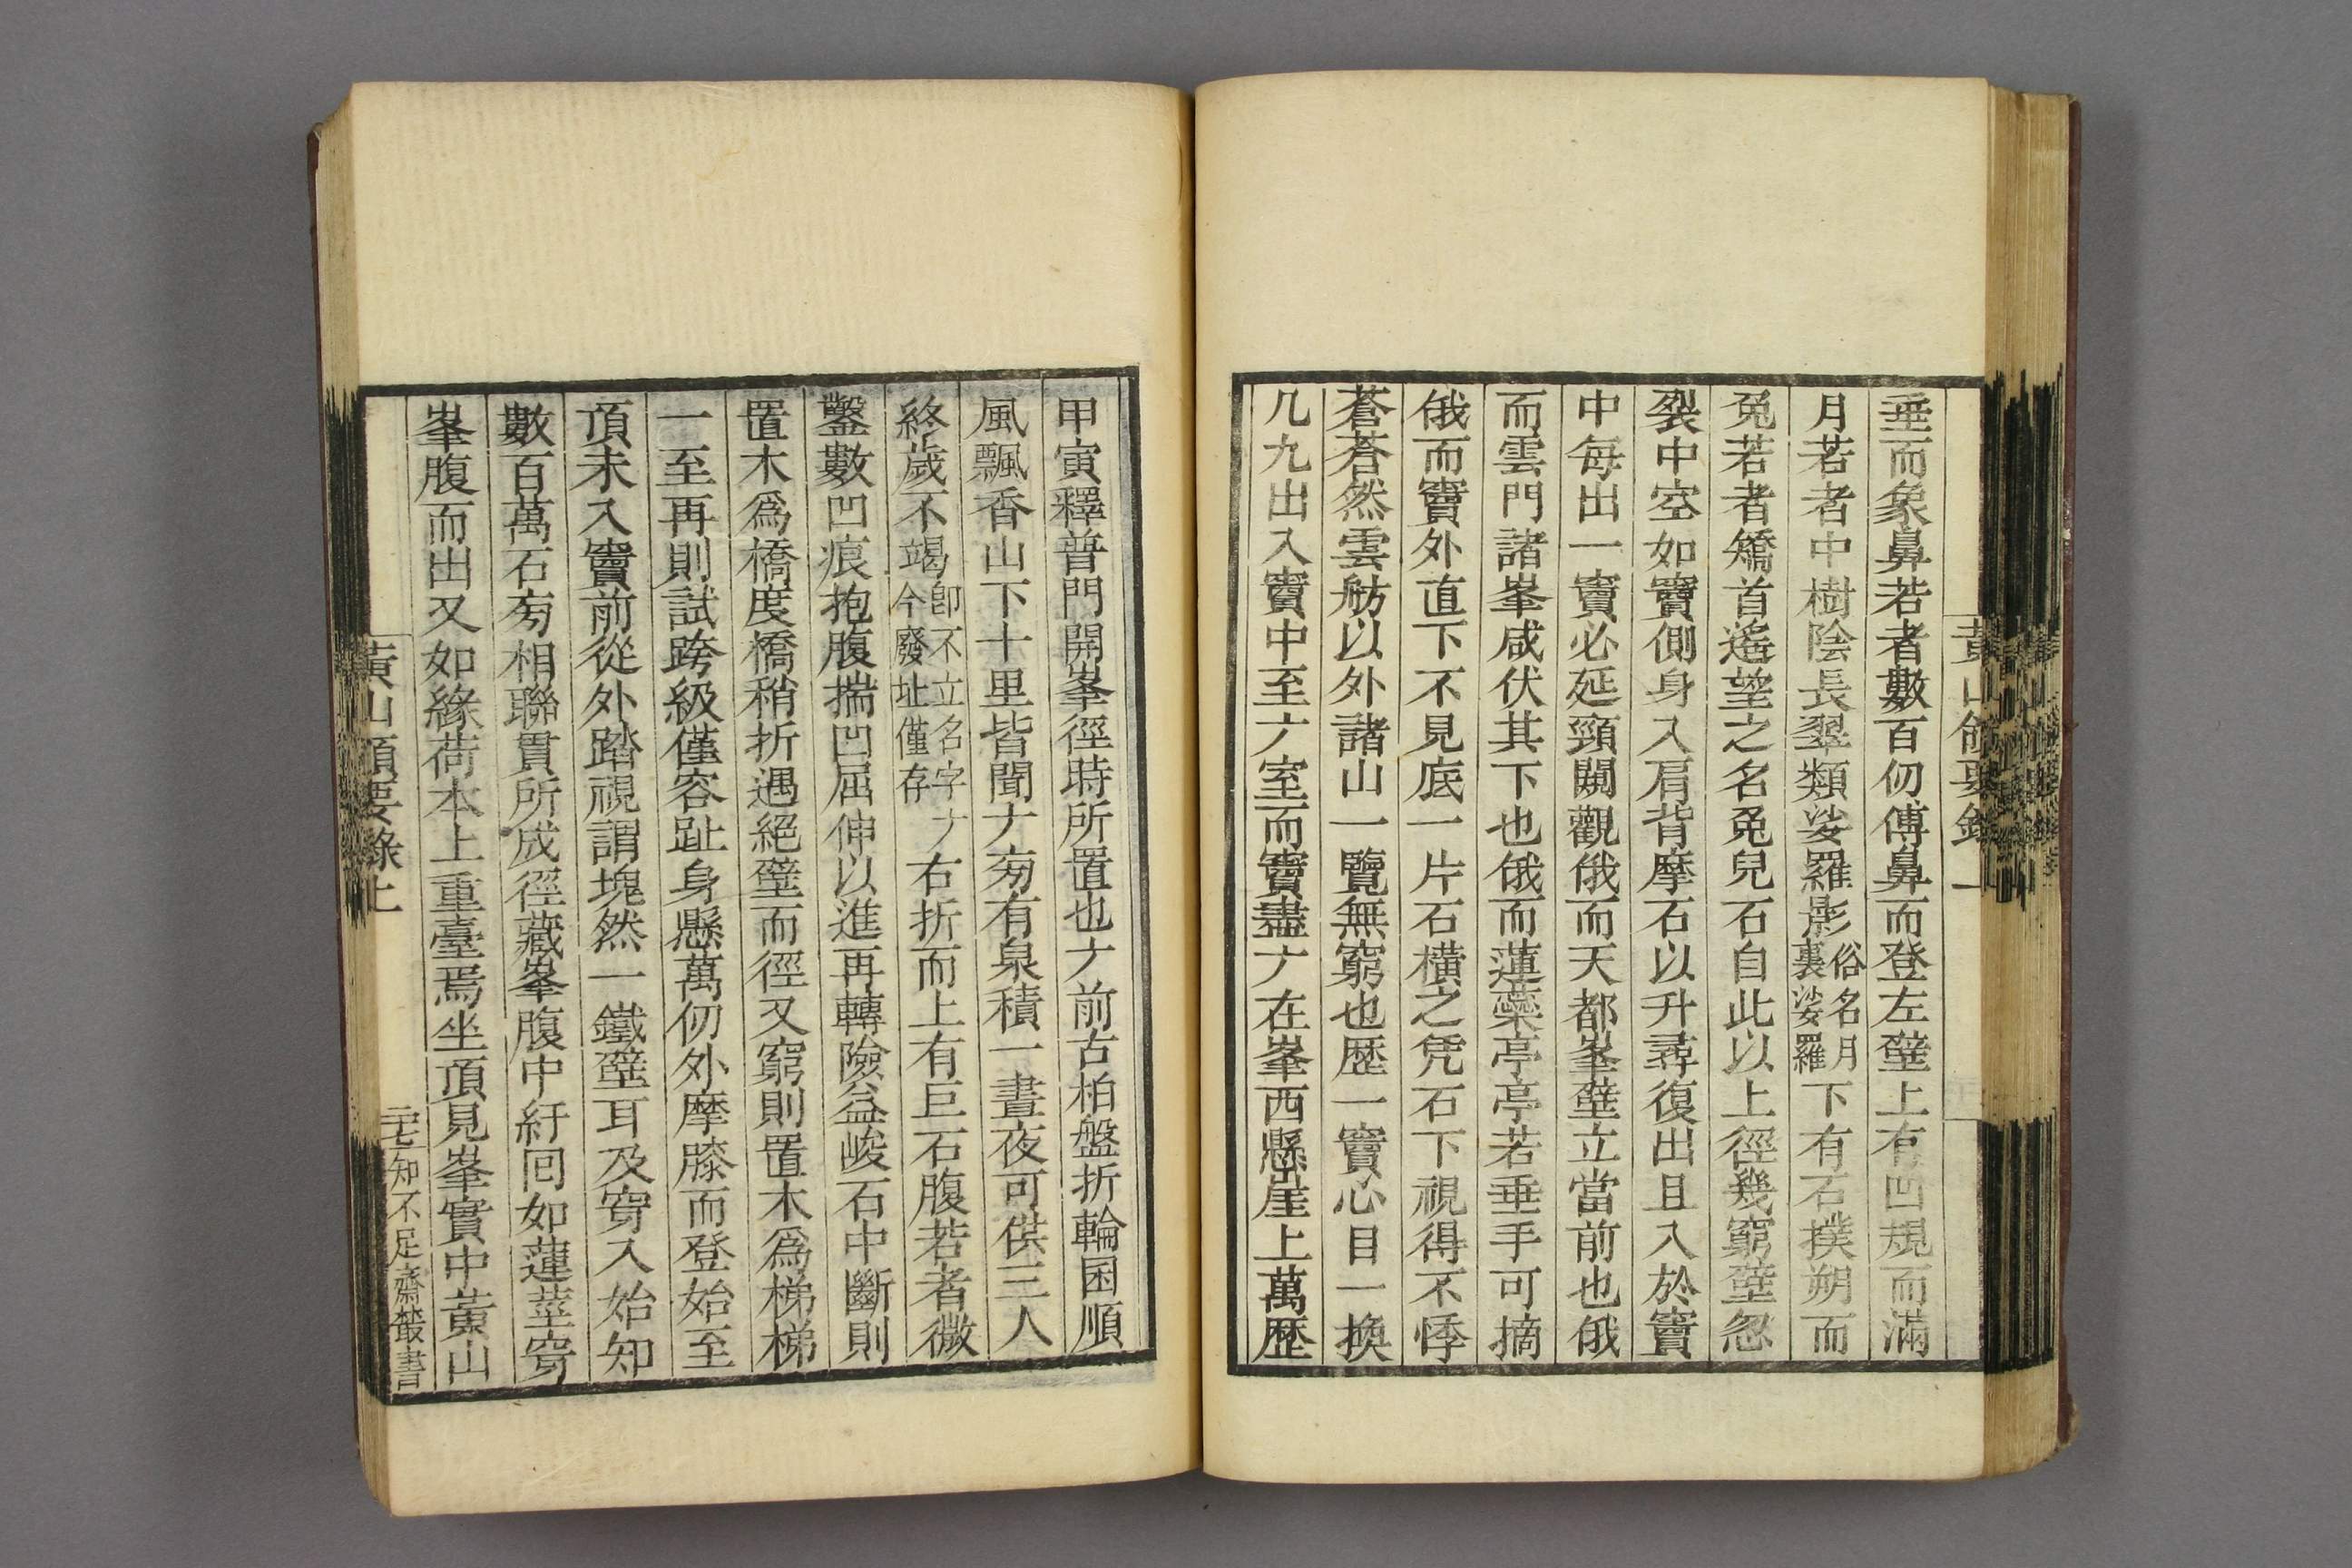 垂而象鼻若者數百仞傅鼻而登左壁上有凹規而滿
月若者中樹陰長翠類娑羅影俗名月裏娑羅下有石撲朔而
兔若者矯首遙望之名兔兒石自此以上徑幾窮壁忽
裂中空如竇側身入肩背摩石以升尋復出且入於竇
中每出一竇必延頸闚觀俄而天都峯壁立當前也俄
而雲門諸峯咸伏其下也俄而蓮蘂亭亭若垂手可摘
俄而竇外直下不見底一片石橫之凭石下視得不悸
蒼蒼然雲舫以外諸山一覽無窮也歷一竇心目一換
凡九出入竇中至𠂇室而竇盡𠂇在峯西懸崖上萬歷
黃山領要錄上
甲寅釋普門開峯徑時所置也𠂇前古柏盤折輪囷順
風飄香山下十里皆聞𠂇旁有泉積一晝夜可供三人
終歲不竭卽不立名字𠂇今廢址僅存右折而上有巨石腹若者微
鑿數凹痕抱腹揣凹屈伸以進再轉險益峻石中斷則
置木爲橋度橋稍折遇絕壁而徑又窮則置木爲梯梯
一至再則試跨級僅容趾身懸萬仞外摩膝而登始至
頂未入竇前從外踏視謂塊然一鐵壁耳及穷入始知
數百萬石旁相聯貫所成徑藏峯腹中紆囘如蓮莖穷
峯腹而出又如緣荷本上重臺焉坐頂見峯實中黃山
黃山領要錄上
二七
知不足齋叢書